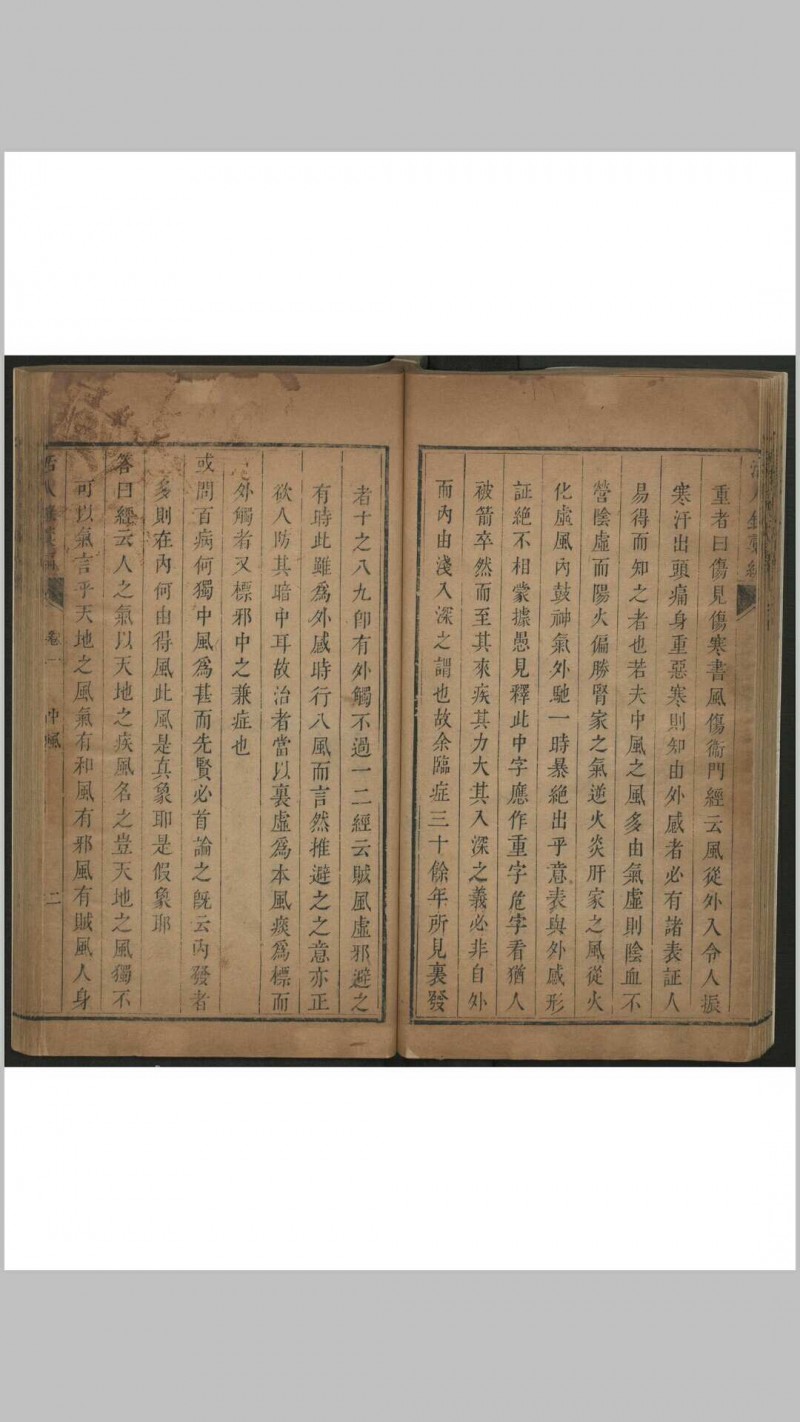 重者曰傷見傷寒書風傷衞門經云風從外入令人振
寒汗出頭痛身重惡寒則知由外感者必有諸表証人
易得而知之者也若夫中風之風多由氣虛則陰血不
營陰虛而陽火偏勝腎家之氣逆火炎肝家之風從火
化虛風內鼓神氣外馳一時暴絶出乎意表與外感形
証絶不相蒙據愚見釋此中字應作重字危字看猶人
被箭卒然而至其來疾其力大其入深之義必非自外
而內由淺入深之謂也故余臨症三十餘年所見裏發
者十之八九卽有外觸不過一二經云賊風虛邪避之
有時此雖爲外感時行八風而言然推避之之意亦正
欲人防其暗中耳故治者當以裏虛爲本風痰爲標而
外觸者又標邪中之兼症也
或問百病何獨中風爲甚而先賢必首論之旣云內發者
多則在內何由得風此風是真象耶是假象耶
答曰經云人之氣以天地之疾風名之豈天地之風獨不
可以氣言乎天地之風氣有和風有邪風有賊風人身
卷一 中風 二